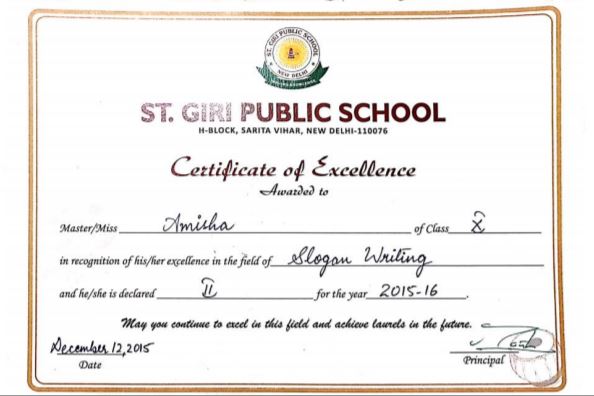 ST. GIRI PUBLIC SCHOOL
NEW DELHI
ST. GIRI PUBLIC SCHOOL
H-BLOCK, SARITA VIHAR, NEW DELHI-110076
Certificate of Excellence
Awarded to
Master/Miss Amisha of Class X
in recognition of his/her excellence in the field of Slogan Writing
and he/she is declared II for the year 2015-16.
May you continue to excel in this field and achieve laurels in the future.
December 12, 2015
Date
Principal